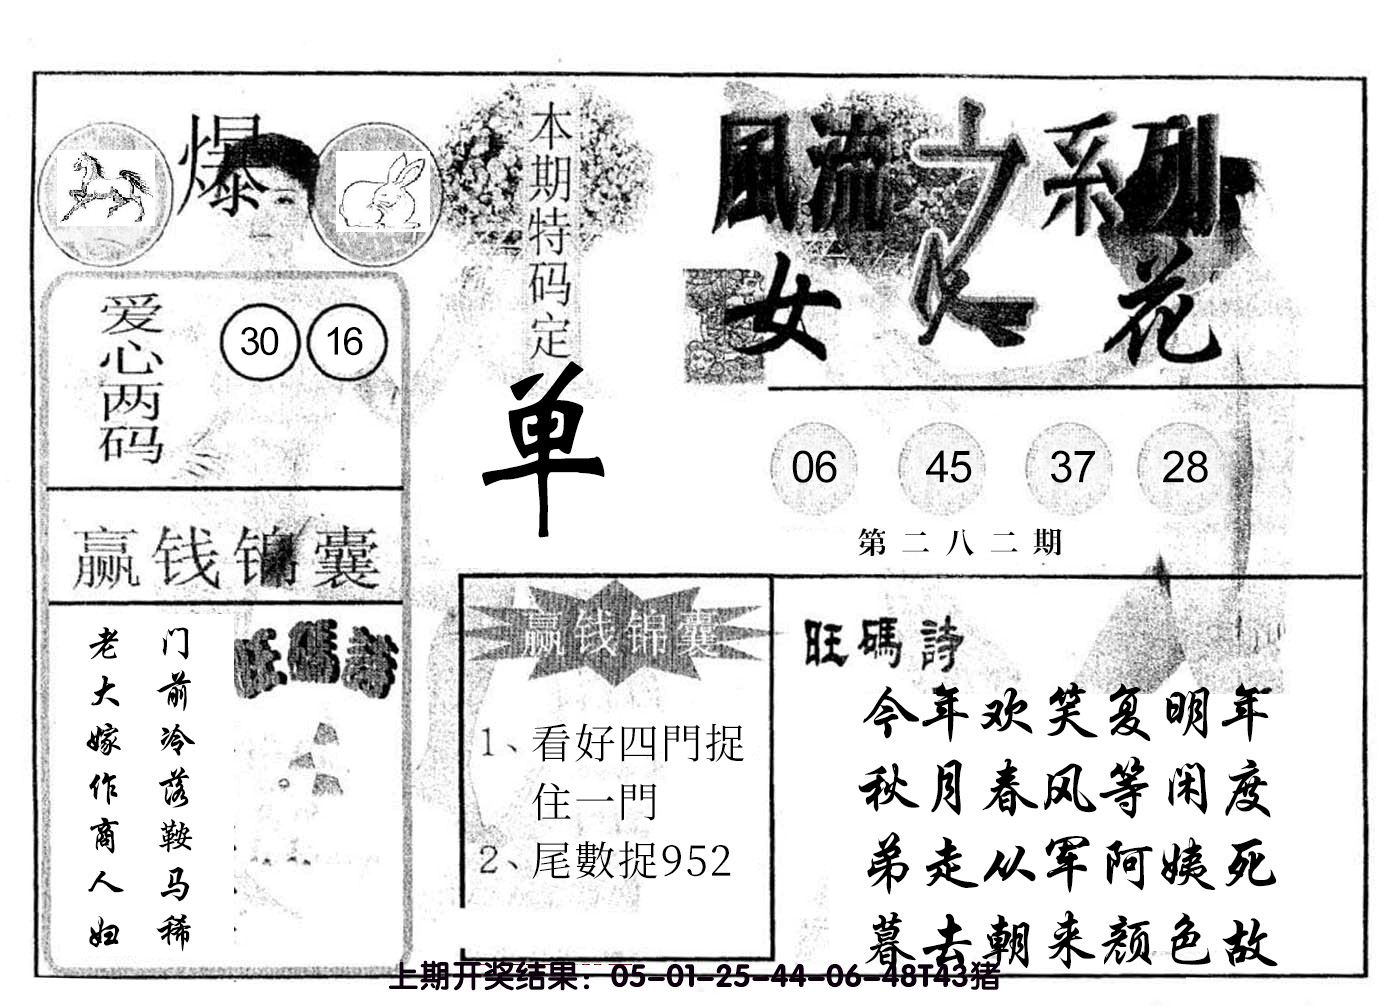 爆
本期特码定
单
風流之系列
女人花
爱心两码
30 16
06 45 37 28
第二八二期
赢钱锦囊
旺碼詩
门前冷落鞍马稀
老大嫁作商人妇
赢钱锦囊
1、看好四門捉
住一門
2、尾數捉952
旺碼詩
今年欢笑复明年
秋月春风等闲度
弟走从军阿姨死
暮去朝来颜色故
上期开奖结果：05-01-25-44-06-48T43猪